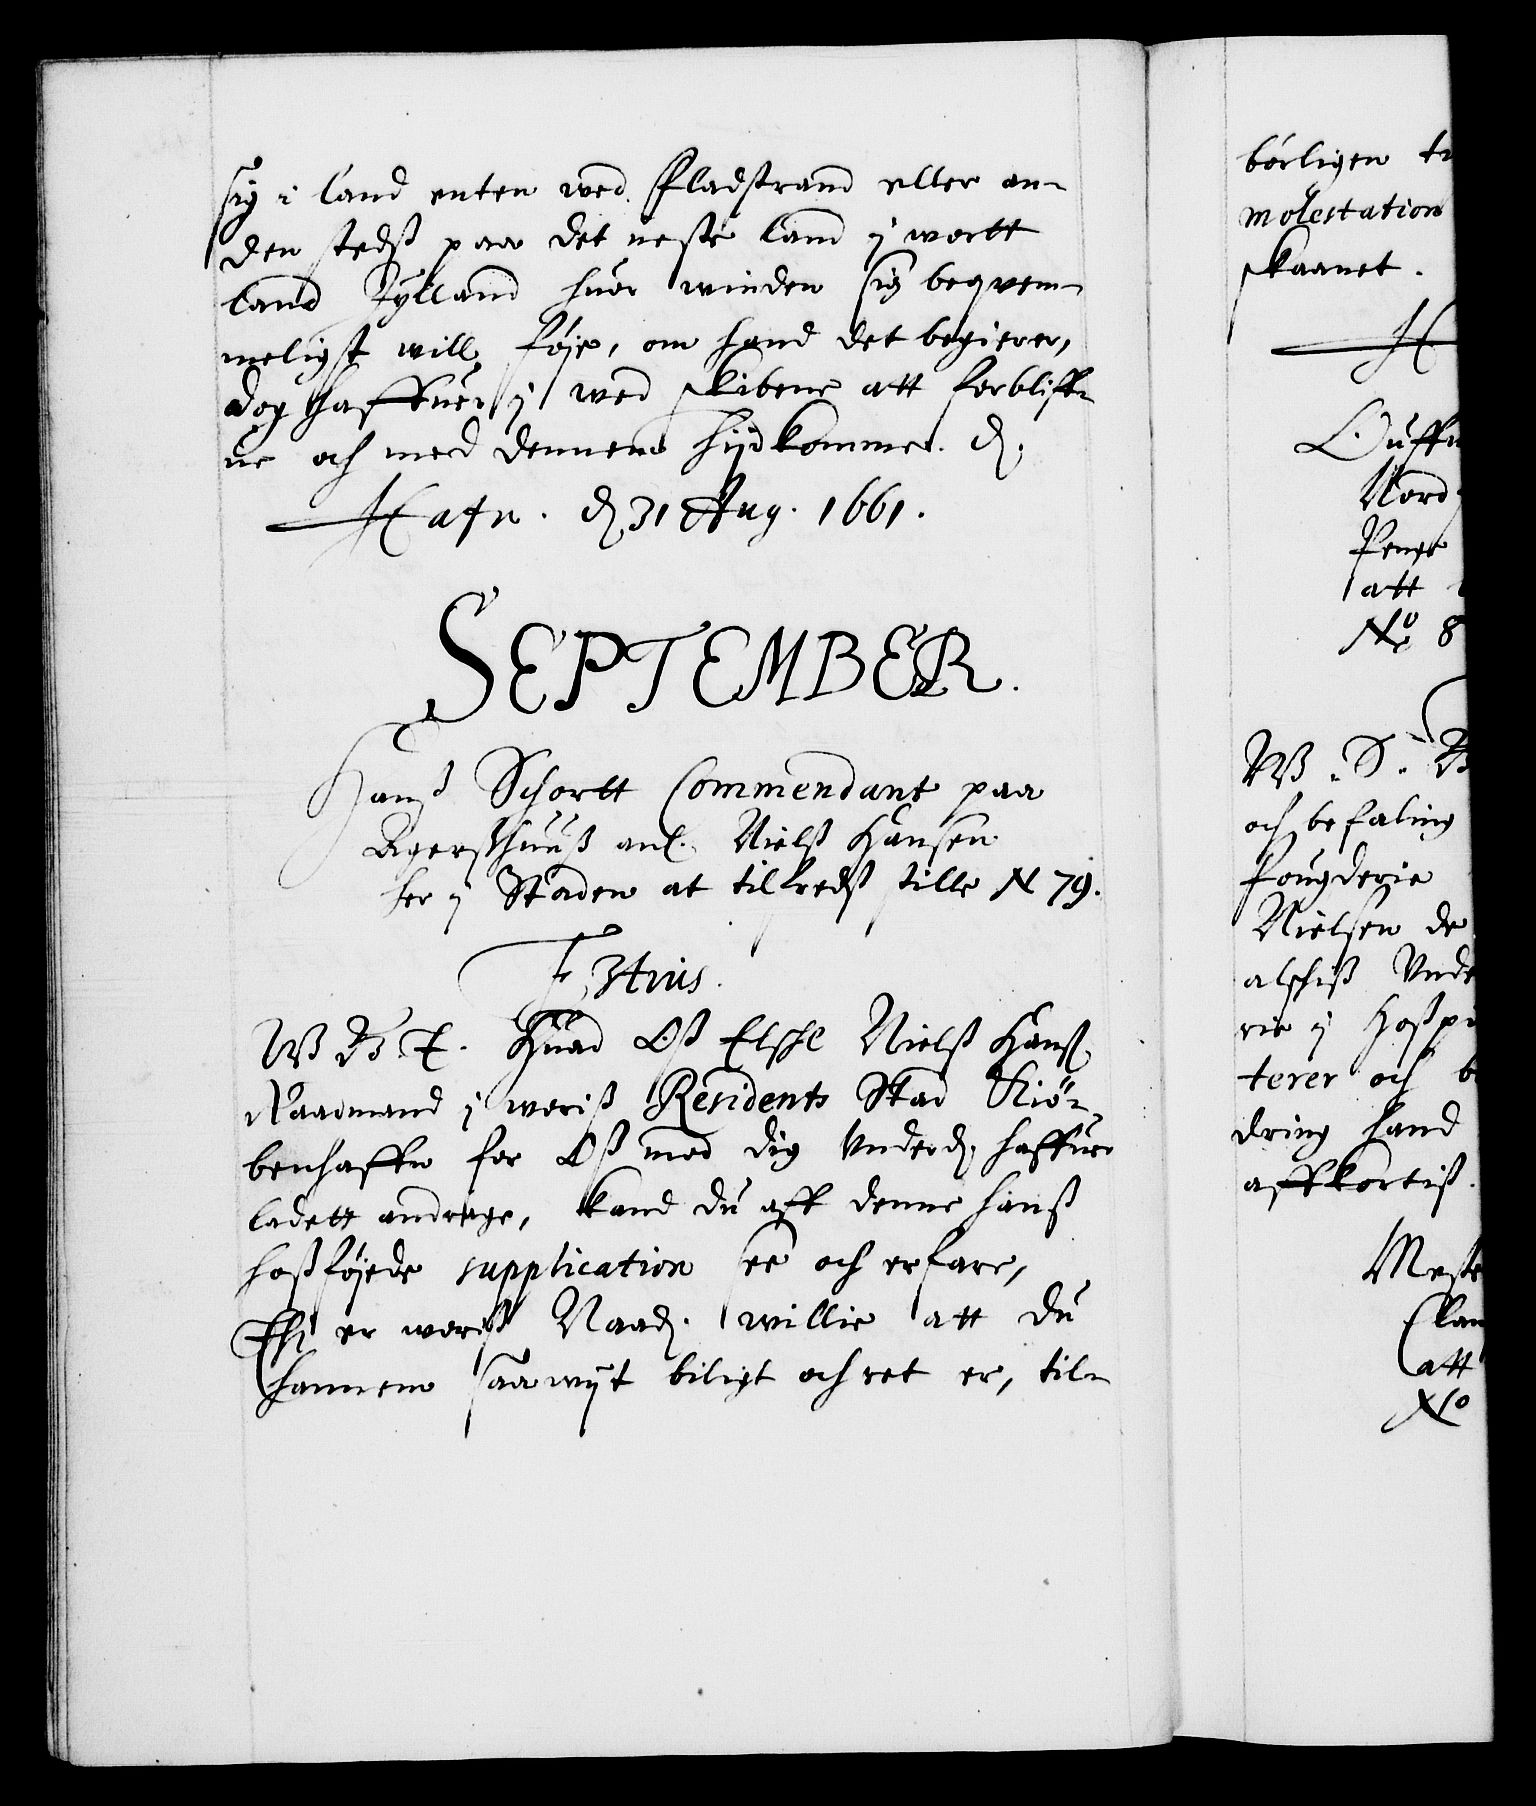 sig i land enten wed Fladstrand eller an-
den stedß paa det neste land i wortt
land Jylland huor winden sig beqvem-
meligst will føje, om hand det begierer,
dog haffuer i wed skibene att forbliff-
ue och med dennem hijdkomme. d.
Hafn. d. 31 Aug. 1661.
SEPTEMBER.
Hanß Schortt Commendant paa
Agerßhuuß anl. Nielß Hansen
her i Staden at tilfredß stille N 79.
F 3tius.
W G T. Huad Oß Elschl Nielß Hanß.
Raadmand i woriß Residents Stad Kiø-
benhaffn for Oß med dig Underd. haffuer
ladett andrage, kand du aff denne hanß
hoßføjede supplication see och erfare,
Thi er woriß Naad. willie att du
hannem saa wijt biligt och ret er, til-
börligen
molestation
skaanet.
H
Nord
Penge
att
No 8
W. S. G
och befaling
fougderie
Nielsen de
alschiß Unde
rie i Hospi
terer och be
dring hand
affkortiß.
Meste
Clau
att
No